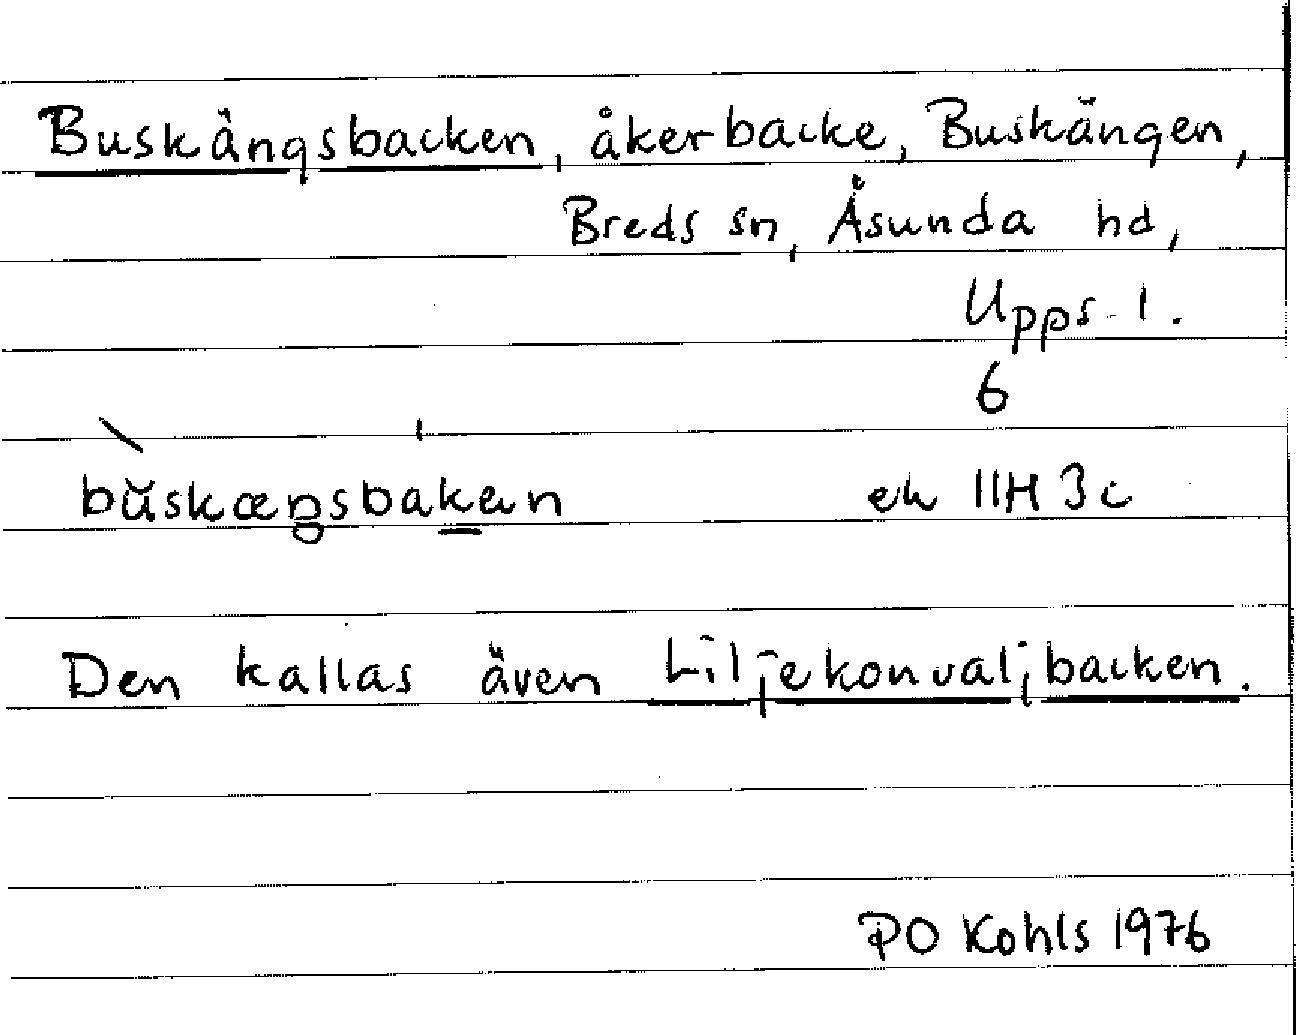 Buskängsbacken, åkerbacke, Buskängen,
Breds sn, Åsunda hd,
Upps. l.
6
bŭskæŋsbakɐn ek 11H 3c
Den kallas även Liljekonvaljbacken.
PO Kohls 1976